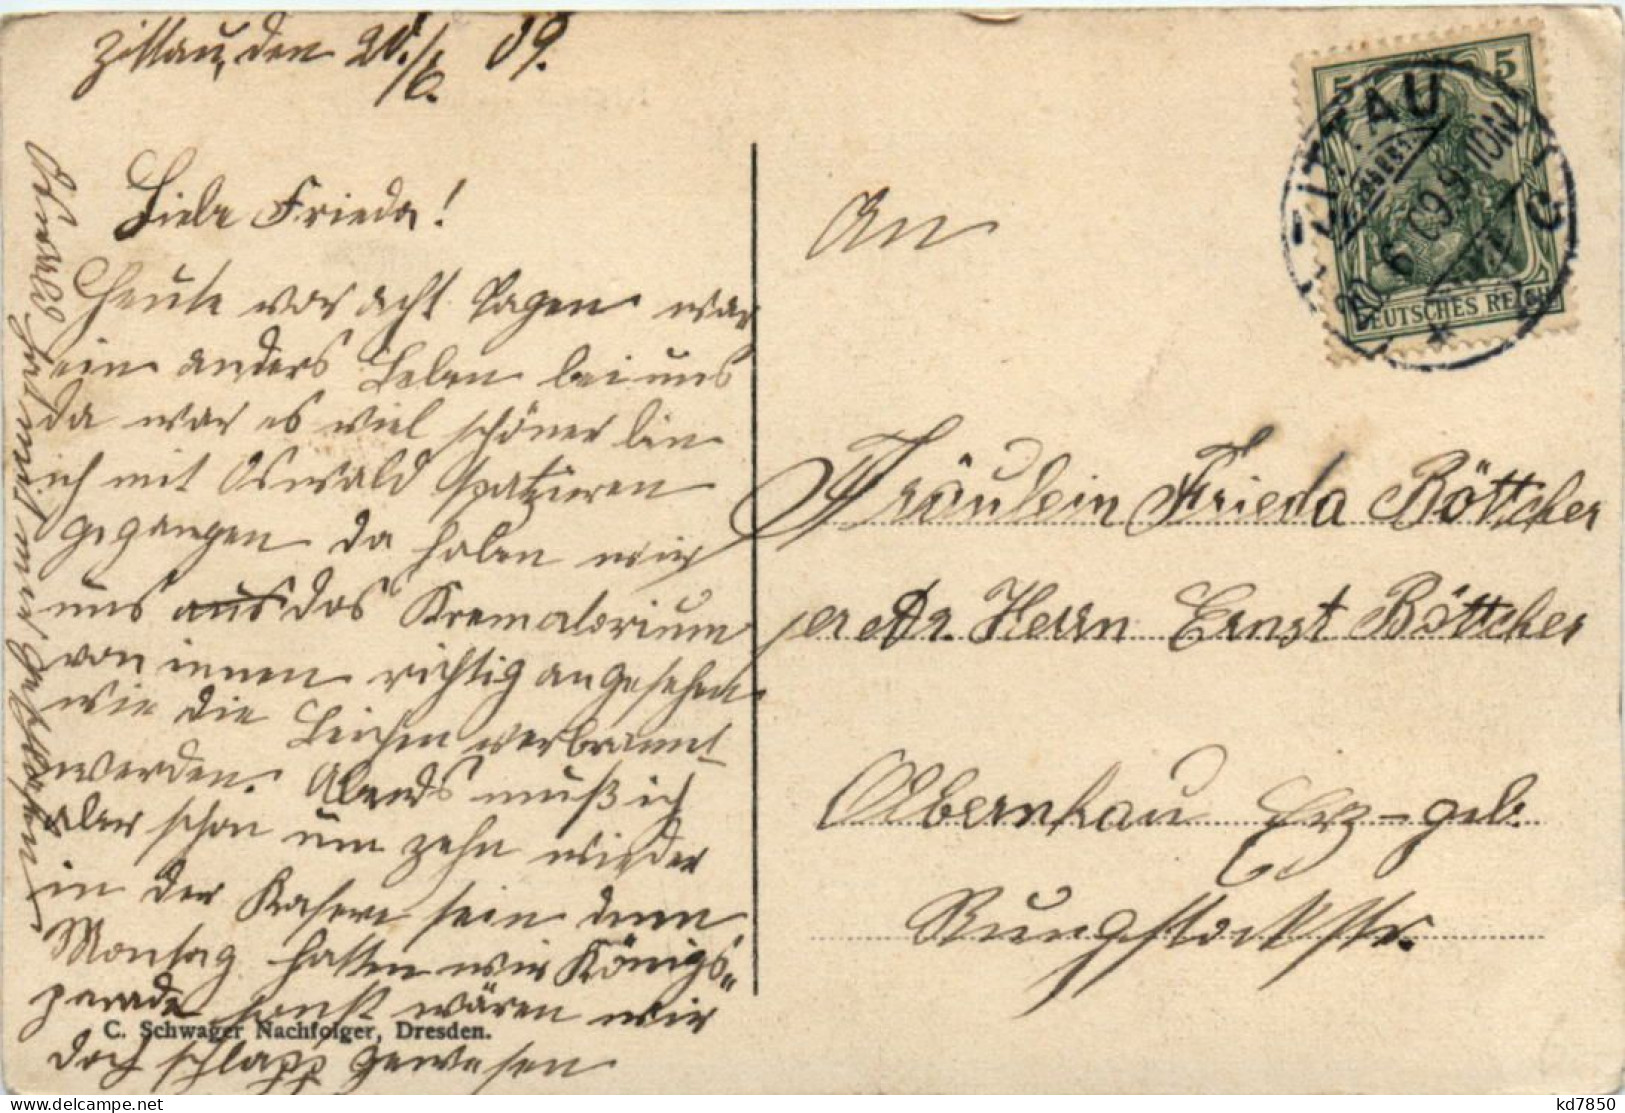 Zittau, den 20./6. 09.
Liebe Frieda!
Heute vor acht Tagen war
ein anders Leben bei uns
da war es viel schöner bin
ich mit Oswald spatzieren
gegangen da haben wir
uns aus das Krematorium
von innen richtig angesehen
wie die Leichen verbrannt
werden. Abends muß ich
aber schon um zehn wieder
in der Kaserne sein denn
Montag hatten wir Königs-
parade sonst wären wir
doch schlapp gewesen
Oswald hat mit mir geschlafen
C. Schwager Nachfolger, Dresden.
5 5
DEUTSCHES REICH
ZITTAU
20 6 09 9-10N
An
Fräulein Frieda Böttcher
per Adr. Herrn Ernst Böttcher
Olbernhau Erz-geb.
Rungstockstr.
kd7850